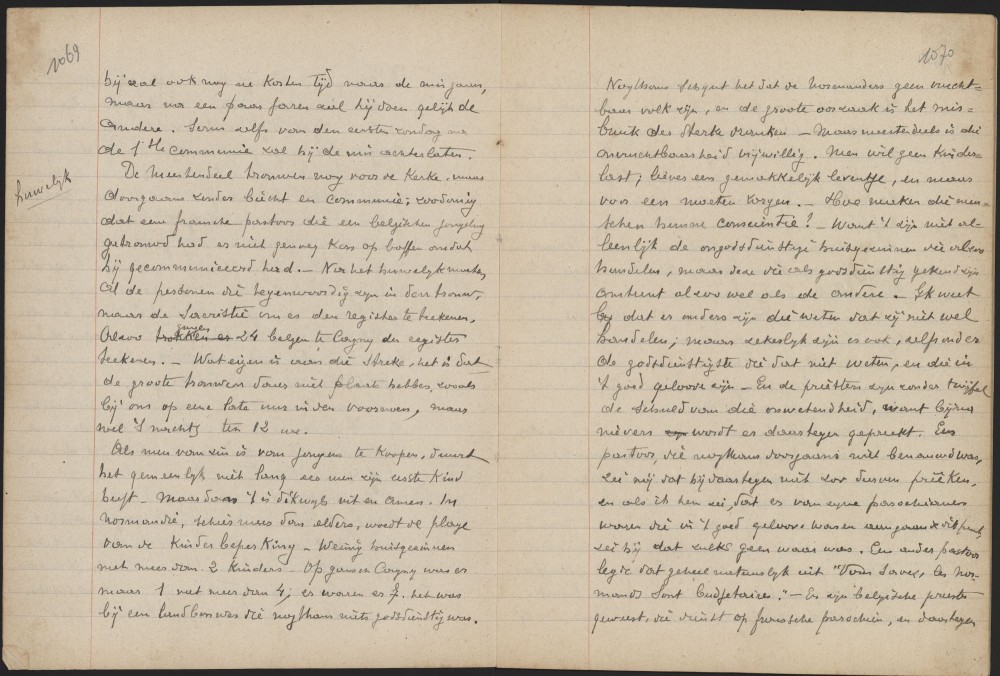 1069
hij zal ook nog ne korten tijd naar de mis gaan,
maar na een paar jaren zal hij doen gelijk de
andere. Soms zelfs van den eersten zondag na
de 1ste communie zal hij de mis achterlaten.
huwelijk
De meestendeel trouwen nog voor de Kerke, maar
doorgaans zonder biecht en communie; zoodanig
dat eene fransche pastoor die een belgischen jongeling
getrouwd had er niet genoeg kon op boffen omdat
hij gecommuniceerd had. — Na het huwelijk moeten
al de personen die tegenwoordig zijn in den trouw,
naar de Sacristie om er den register te teekenen.
Alzoo gingen er 24 belgen te Cagny den register
teekenen. — Wat eigen is aan die streke, het is dat
de groote trouwen daar niet plaats hebben, zooals
bij ons op eene late uur in den voornoen, maar
wel 's nachts ten 12 ure.
Als men van zin is van jongens te koopen, duurt
het gemeenlijk niet lang eer men zijn eerste kind
heeft — Maar daar 't is dikwijls uit en amen. In
Normandië, schier meer dan elders, woedt de plage
van de Kinderbeperking — Weinig huisgezinnen
met meer dan 2 kinders — Op gansch Cagny was er
maar 1 met meer dan 4; er waren er 7. het was
bij een landbouwer die nogthans niets godsdienstig was.
1070
Nogthans schijnt het dat de Normanders geen vrucht-
baar volk zijn, en de groote oorzaak is het mis-
bruik der sterke dranken — Maar meestendeels is die
onvruchtbaarheid vrijwillig. Men wil geen kinder-
last; liever een gemakkelijk leventje, en maar
voor een moeten zorgen. — Hoe maken die men-
schen hunne consciëntie? — Want 't zijn niet al-
leenlijk de ongodsdienstige huisgezinnen die alzoo
handelen, maar deze die als godsdienstig gekend zijn
omtrent alzoo wel als de andere. — Ik weet
dat er onders zijn die weten dat zij niet wel
handelen; maar zekerlijk zijn er ook, zelfs onder
de godsdienstigste die dat niet weten, en die in
't goed geloove zijn — En de priesters zijn zonder twijfel
de schuld van die onwetendheid, want bijna
nievers wordt er daartegen gepreekt. Een
pastoor, die nogthans doorgaans niet benauwd was,
zei mij dat hij daartegen niet zou durven preêken,
en als ik hem zei, dat er van zijne parochianen
waren die in 't goed geloove waren aangaande dit punt,
zei hij dat zulks geen waar was. Een ander pastoor
legde dat geheel natuurlijk uit "Vous savez, les Nor-
mands sont budgétaires." — Er zijn belgische priesters
geweest, die dienst op fransche parochien, en daartegen